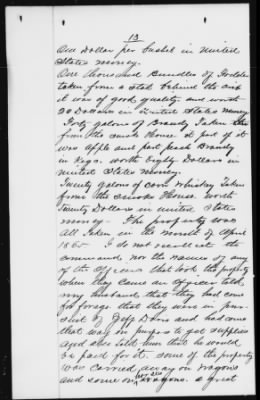 13
One Dollar per bushel in United
States money.
One thousand Bundles of Fodder
taken from a stal behind the
it was of good quality and worth
20 Dollars in United States money
Forty galons of Brandy Taken
from the smoke House a part of it
was apple and part peach Brandy
in Kegs. worth Eighty Dollars in
united States Money.
Twenty galons of corn whiskey Taken
from the smoke House worth
Twenty Dollars in united States
money - The property was
all Taken in the month of April
1865 I do not recollect the
command nor the names of any
of the Officers that took the property
when they came an officer told
my husband that they had come
for forage that they were in pur-
suit of Jeff Davis and had come
that way on purpos to get supplies
and also told him that he would
be paid for it. some of the property
was carried away on wagons
and some on wagons. a great